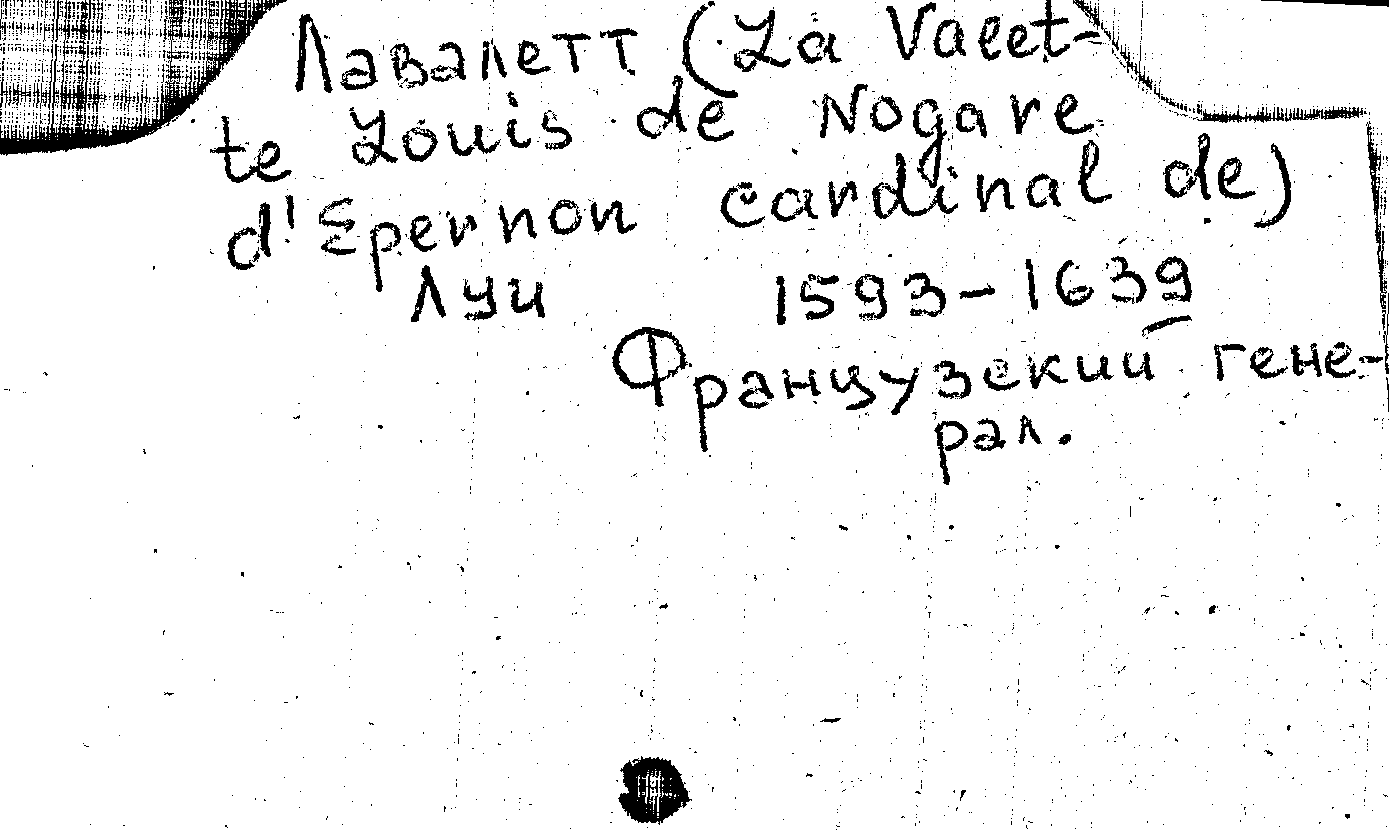 Лавалетт (La Valet-
te Louis de Nogare
d'Epernon cardinal de)
Луи 1593-1639
Французский гене-
рал.